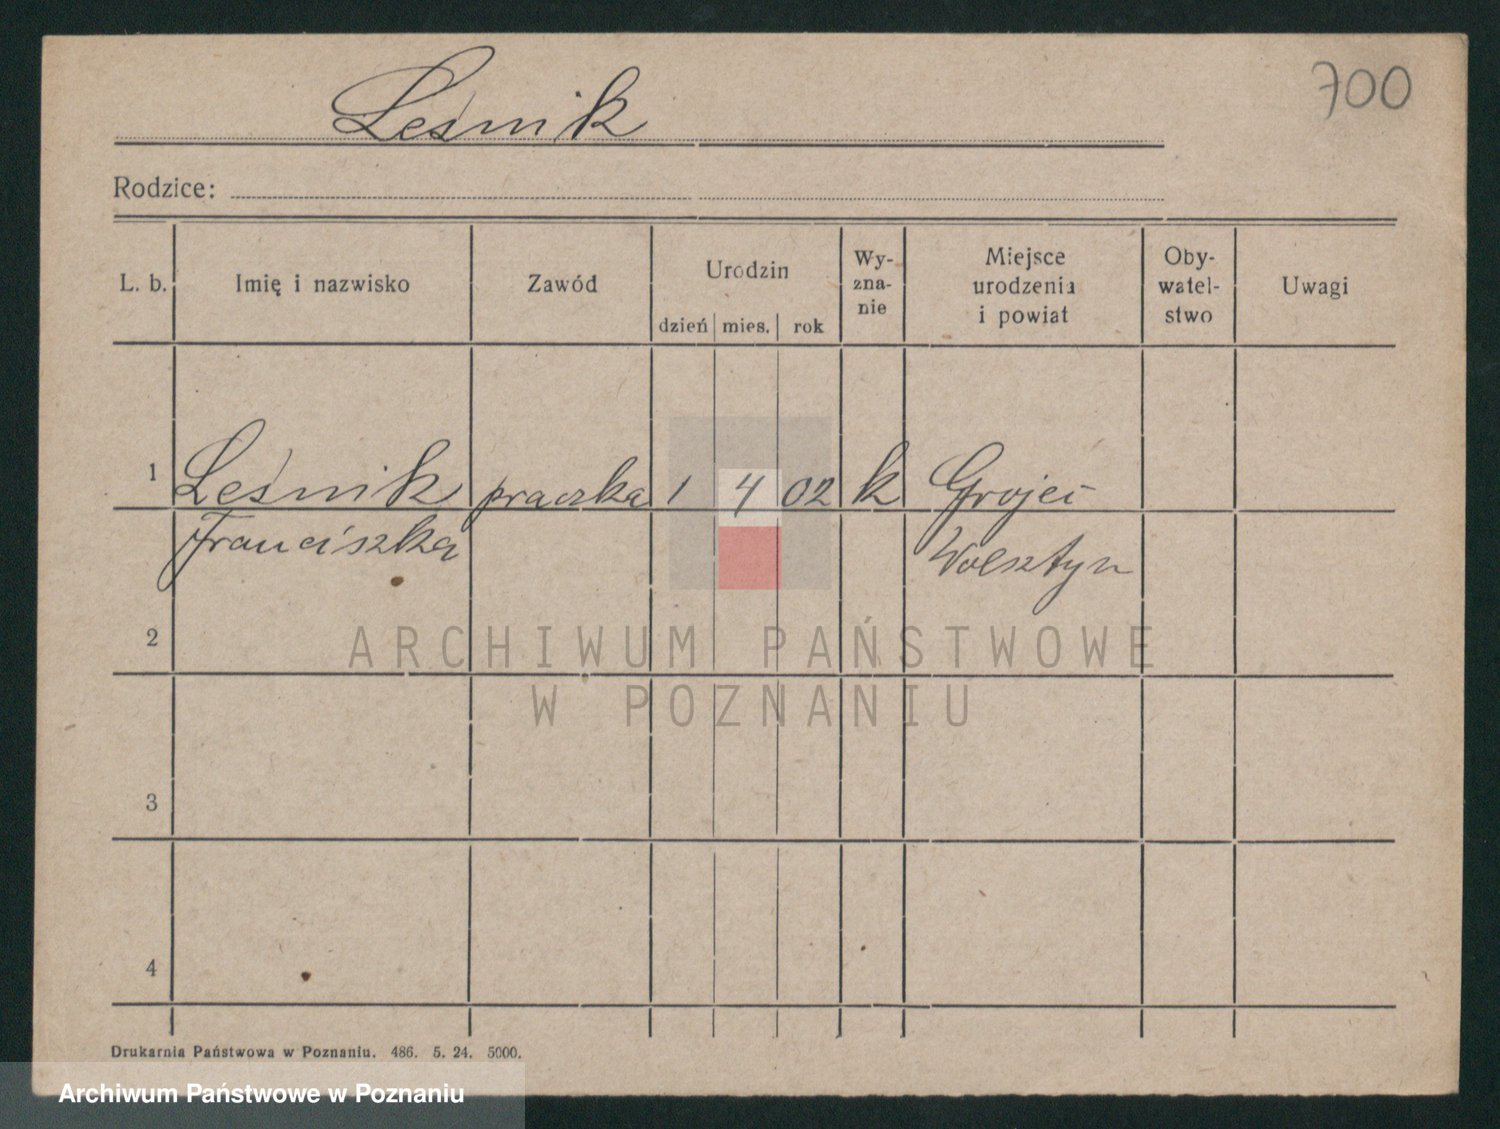 700
Leśnik
Rodzice:
L. b. Imię i nazwisko Zawód Urodzin dzień mies. rok Wy-zna-nie Miejsce urodzenia i powiat Oby-watel-stwo Uwagi
1 Leśnik praczka 1 4 02 k Grojec
Franciszka Wolsztyn
2
ARCHIWUM PAŃSTWOWE
W POZNANIU
3
4
Drukarnia Państwowa w Poznaniu. 486. 5. 24. 5000.
Archiwum Państwowe w Poznaniu